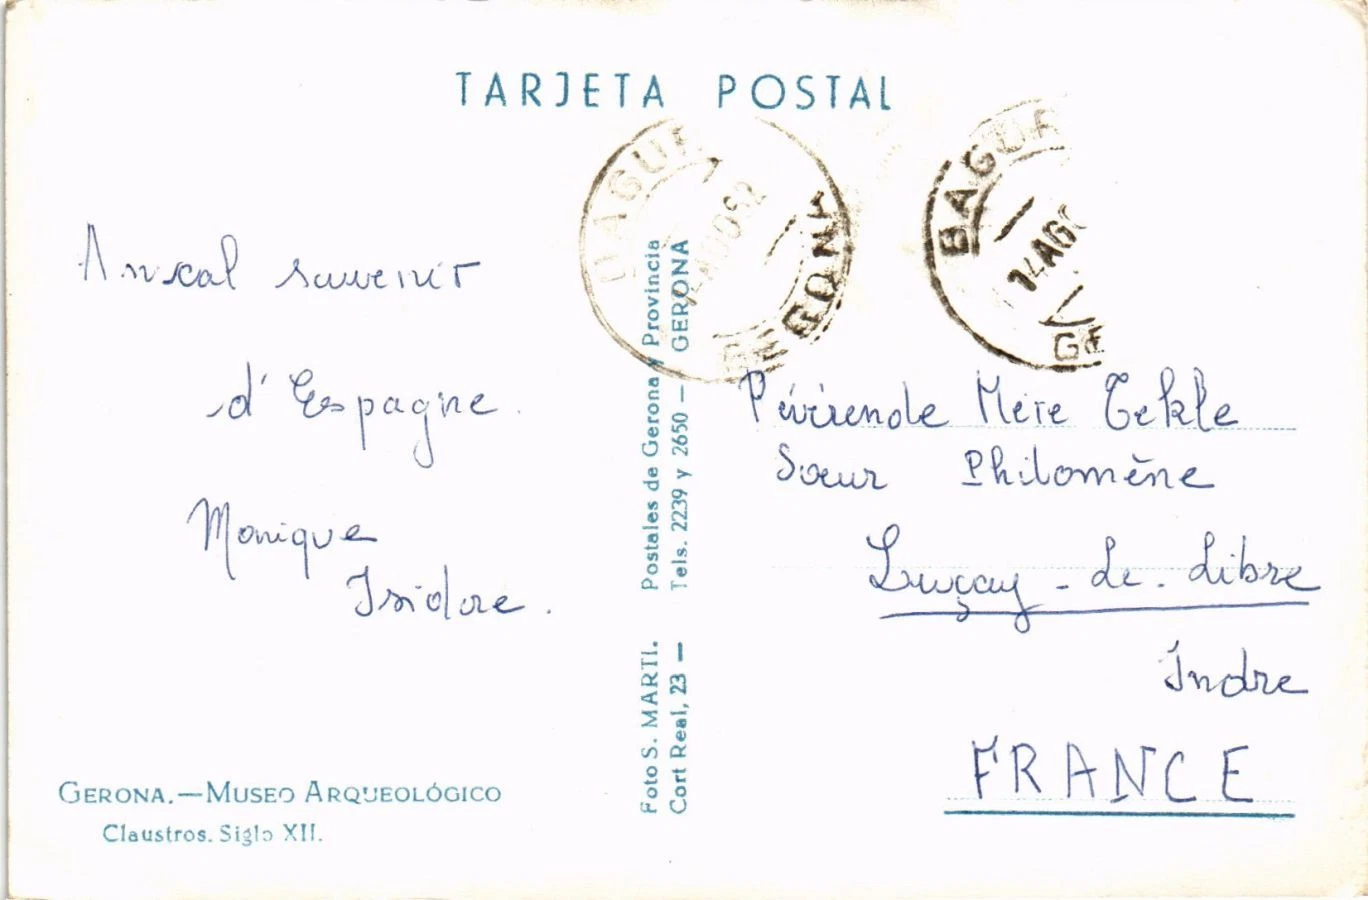 TARJETA POSTAL
BAGUR
14 AGO 52
GERONA
BAGUR
14 AGO
GE
Amical souvenir
d'Espagne.
Monique
Isidore.
Révérende Mère Tekle
Sœur Philomène
Luçay-Le-Libre
Indre
FRANCE
Foto S. MARTI. Postales de Gerona y Provincia
Cort Real, 23 — Tels. 2239 y 2650 — GERONA
GERONA.—MUSEO ARQUEOLÓGICO
Claustros. Siglo XII.